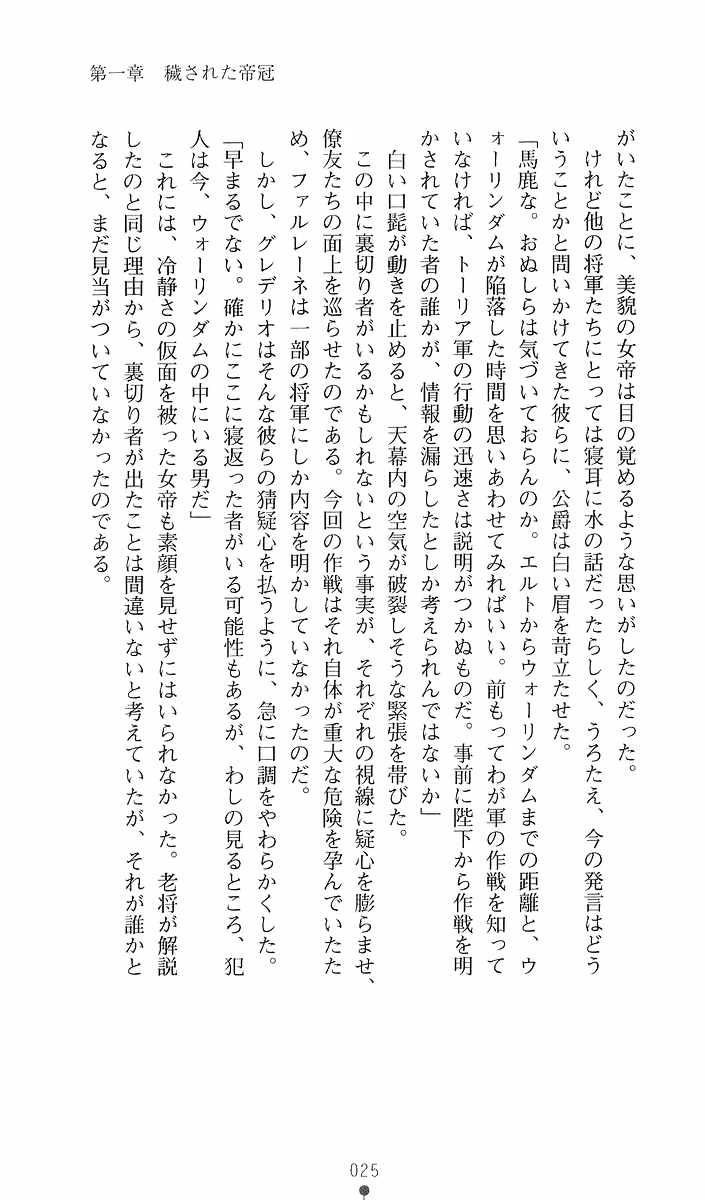 第一章　穢された帝冠
がいたことに、美貌の女帝は目の覚めるような思いがしたのだった。
　けれど他の将軍たちにとっては寝耳に水の話だったらしく、うろたえ、今の発言はどう
いうことかと問いかけてきた彼らに、公爵は白い眉を苛立たせた。
「馬鹿な。おぬしらは気づいておらんのか。エルトからウォーリンダムまでの距離と、ウ
ォーリンダムが陥落した時間を思いあわせてみればいい。前もってわが軍の作戦を知って
いなければ、トーリア軍の行動の迅速さは説明がつかぬものだ。事前に陛下から作戦を明
かされていた者の誰かが、情報を漏らしたとしか考えられんではないか」
　白い口髭が動きを止めると、天幕内の空気が破裂しそうな緊張を帯びた。
　この中に裏切り者がいるかもしれないという事実が、それぞれの視線に疑心を膨らませ、
僚友たちの面上を巡らせたのである。今回の作戦はそれ自体が重大な危険を孕んでいたた
め、ファルレーネは一部の将軍にしか内容を明かしていなかったのだ。
　しかし、グレデリオはそんな彼らの猜疑心を払うように、急に口調をやわらかくした。
「早まるでない。確かにここに寝返った者がいる可能性もあるが、わしの見るところ、犯
人は今、ウォーリンダムの中にいる男だ」
　これには、冷静さの仮面を被った女帝も素顔を見せずにはいられなかった。老将が解説
したのと同じ理由から、裏切り者が出たことは間違いないと考えていたが、それが誰かと
なると、まだ見当がついていなかったのである。
025